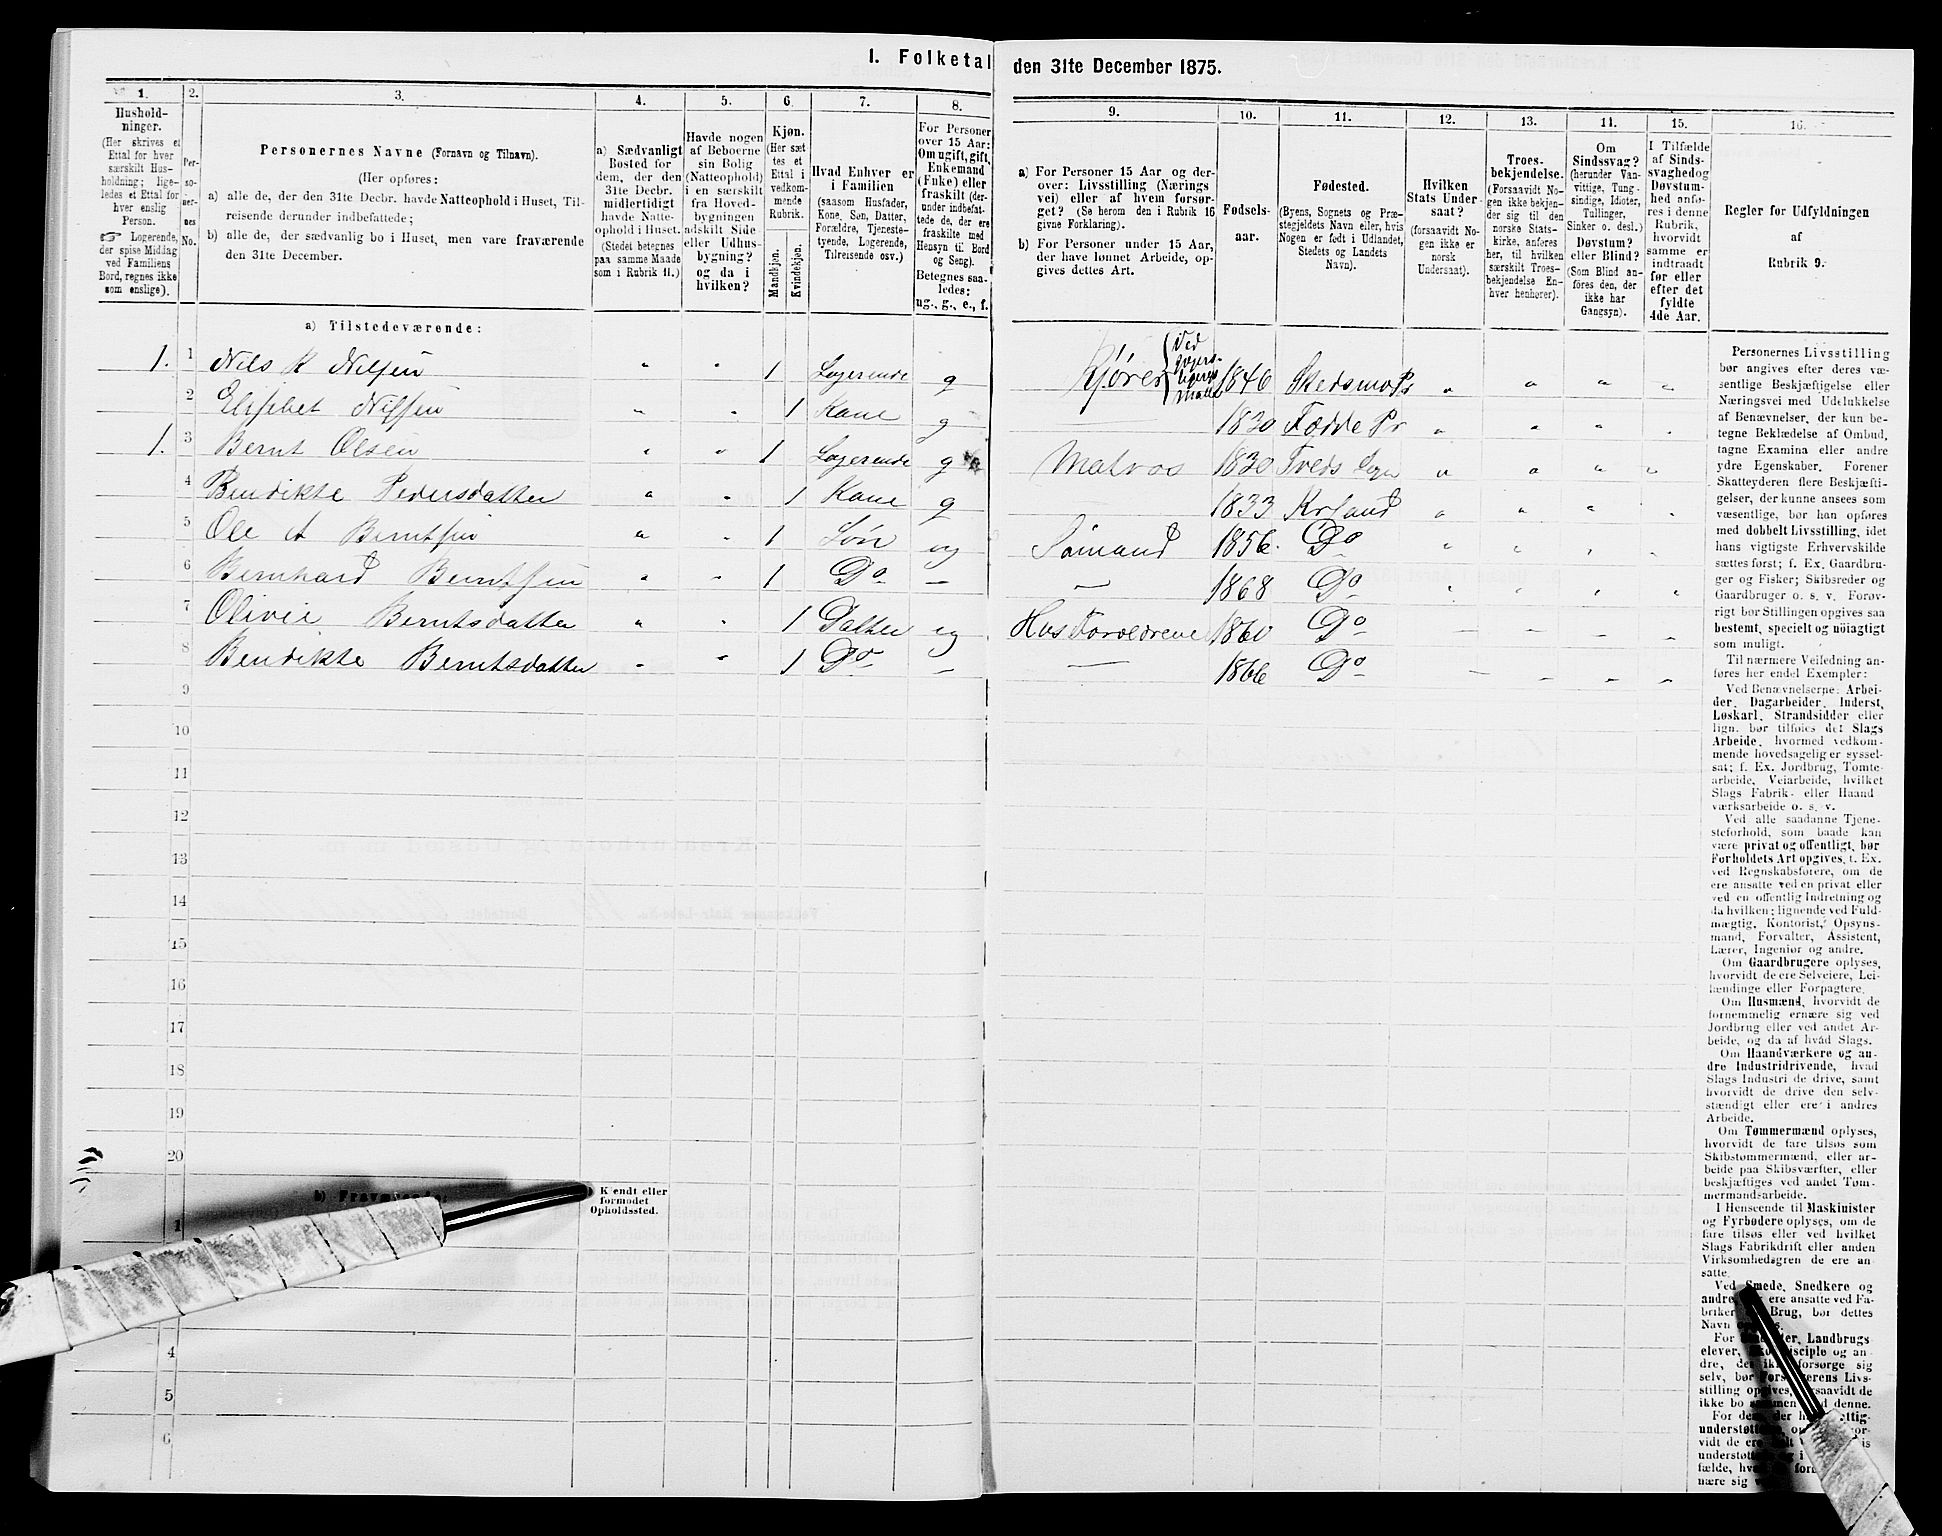 I. Folketal den 31te December 1875.
1. 2. 3. 4. 5. 6. 7. 8.
Hushold-
ninger.
(Her skrives et
Ettal for hver
særskilt Hus-
holdning; lige-
ledes et Ettal for
hver enslig
Person.
☞ Logerende,
der spise Middag
ved Familiens
Bord, regnes ikke
som enslige).
Per-
so-
ner-
nes
No.
Personernes Navne (Fornavn og Tilnavn).
(Her opføres:
a) alle de, der den 31te Decbr. havde Natteophold i Huset, Til-
reisende derunder indbefattede;
b) alle de, der sædvanlig bo i Huset, men vare fraværende
den 31te December.
a) Sædvanligt
Bosted for
dem, der den
31te Decbr.
midlertidigt
havde Natte-
ophold i Huset.
(Stedet betegnes
paa samme Maade
som i Rubrik 11.)
Havde nogen
af Beboerne
sin Bolig
(Natteophold)
i en særskilt
fra Hoved-
bygningen
adskilt Side
eller Udhus-
bygning?
og da i
hvilken?
Kjøn.
(Her sæt-
tes et
Ettal i
vedkom-
mende
Rubrik.
Mandkjøn.
Kvindekjøn.
Hvad Enhver er
i Familien
(saasom Husfader,
Kone, Søn, Datter,
Forældre, Tjeneste-
tyende, Logerende,
Tilreisende osv.)
For Personer
over 15 Aar:
Om ugift, gift,
Enkemand
(Enke) eller
fraskilt (der-
under indbefat-
tede de, der ere
fraskilte med
Hensyn til Bord
og Seng).
Betegnes saa-
ledes:
ug., g., e., f.
9. 10. 11. 12. 13. 14. 15. 16.
a) For Personer 15 Aar og der-
over: Livsstilling (Nærings
vei) eller af hvem forsør-
get? (Se herom den i Rubrik 16
givne Forklaring).
b) For Personer under 15 Aar,
der have lønnet Arbeide, op-
gives dettes Art.
Fødsels-
aar.
Fødested.
(Byens, Sognets og Præ-
stegjeldets Navn eller, hvis
Nogen er født i Udlandet,
Stedets og Landets
Navn).
Hvilken
Stats Under-
saat?
(forsaavidt No-
gen ikke er
norsk
Undersaat).
Troes-
bekjendelse.
(Forsaavidt No-
gen ikke bekjen-
der sig til den
norske Stats-
kirke, anføres
her, til hvilken
særskilt Troes-
bekjendelse En-
hver henhører).
Om
Sindssvag?
(herunder Van-
vittige, Tung-
sindige, Idioter,
Tullinger,
Sinker o. desl.)
Døvstum?
eller Blind?
(Som Blind an-
føres den, der
ikke har
Gangsyn).
I Tilfælde
af Sinds-
svaghed og
Døvstum-
hed anfø-
res i denne
Rubrik,
hvorvidt
samme er
indtraadt
før eller
efter det
fyldte
4de Aar.
Regler for Udfyldningen
af
Rubrik 9.
a) Tilstedeværende:
1. 1 Nils K Nilsen " 1 Logerende g Kjører Ved 1846 Skedsmo Pr " " " "
2 Elisebet Nilsen " " 1 Kone g — 1830 Fædde Pr " " " "
1. 3 Bernt Olsen " " 1 Logerende g Matros 1830 Tveds Sogn " " " "
4 Bendikte Pedersdatter " " 1 Kone g 1833 Krsand " " " "
5 Ole A Berntsen " " 1 Søn ug Sømand 1856 Do " " " "
6 Bernhard Berntsen " " 1 Do — — 1868 Do " " " "
7 Olivie Berntsdatter " " 1 Datter ug Hos Forældrene 1860 Do — — — —
8 Bendikte Berntsdatter " " 1 Do — — 1866 Do — — — —
9
10
11
12
13
14
15
16
17
18
19
20
b) Fraværende:
Kjendt eller
formodet
Opholdssted.
1
4
5
6
Personernes Livsstilling
bør angives efter deres væ-
sentlige Beskjæftigelse eller
Næringsvei med Udelukkelse
af Benævnelser, der kun be-
tegne Beklædelse af Ombud,
tagne Examina eller andre
ydre Egenskaber. Forener
Skatteyderen flere Beskjæfti-
gelser, der kunne ansees som
væsentlige, bør han opføres
med dobbelt Livsstilling, idet
hans vigtigste Erhvervskilde
sættes først; f. Ex. Gaardbru-
ger og Fisker; Skibsreder og
Gaardbruger o. s. v. Forøv-
rigt bør Stillingen opgives saa
bestemt, specielt og nöiagtigt
som muligt.
Til nærmere Veiledning an-
føres her endel Exempler:
Ved Benævnelserne: Arbei-
der, Dagarbeider, Inderst,
Løskarl, Strandsidder eller
lign. bør tilføies det Slags
Arbeide, hvormed vedkom-
mende hovedsagelig er syssel-
sat; f. Ex. Jordbrug, Tomte-
arbeide, Veiarbeide, hvilket
Slags Fabrik- eller Haand
værksarbeide o. s. v.
Ved alle saadanne Tjene-
steforhold, som baade kan
være privat og offentligt, bør
Forholdets Art opgives, t. Ex.
ved Regnskabsførere, om de
ere ansatte ved en privat eller
ved en offentlig Indretning og
da hvilken; lignende ved Fuld-
mægtig, Kontorist, Opsyns-
mand, Forvalter, Assistent,
Lærer, Ingeniør og andre.
Om Gaardbrugere oplyses,
hvorvidt de ere Selveiere, Lei-
lændinge eller Forpagtere.
Om Husmænd, hvorvidt de
fornemmelig ernære sig ved
Jordbrug eller ved andet Ar-
beide, og da af hvad Slags.
Om Haandværkere og an-
dre Industridrivende, hvad
Slags Industri de drive, samt
hvorvidt de drive den selv-
stændigt eller ere i andres
Arbeide.
Om Tømmermænd oplyses,
hvorvidt de fare tilsøs som
Skibstømmermænd, eller ar-
beide paa Skibsværfter, eller
beskjæftiges ved andet Tøm-
mermandsarbeide.
I Henseende til Maskinister
og Fyrbødere oplyses, om de
fare tilsøs eller ved hvilket
Slags Fabrikdrift eller anden
Virksomhedsgren de ere an-
satte.
Ved Smede, Snedkere og
andre, ere ansatte ved Fa-
briker Brug, bør dettes
Navn
For Landbrugs
elever, og an
dre, forsørge sig
selv, bør Livs-
stilling
ikke bo denne.
For